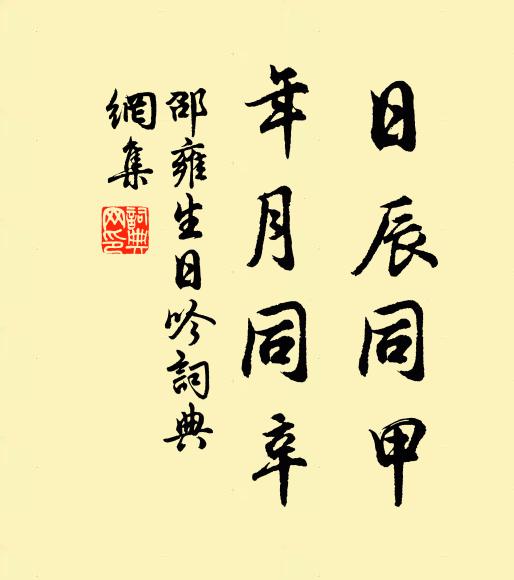 日辰同甲
年月同辛
邵雍生日吟詞典
網集
詞典網印